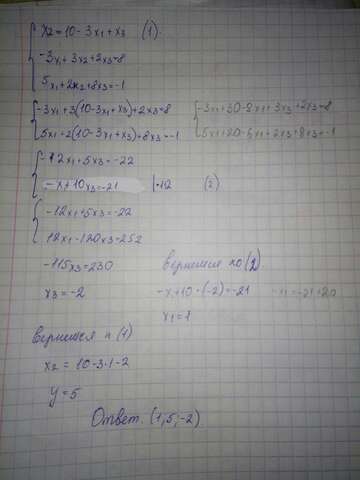 x₂=10-3x₁+x₃ (1)
-3x₁+3x₂+2x₃=8
5x₁+2x₂+8x₃=-1
-3x₁+3(10-3x₁+x₃)+2x₃=8 -3x₁+30-9x₁+3x₃+2x₃=8
5x₁+2(10-3x₁+x₃)+8x₃=-1 5x₁+20-6x₁+2x₃+8x₃=-1
-12x₁+5x₃=-22
-x+10x₃=-21 |·12 (2)
-12x₁+5x₃=-22
12x₁-120x₃=252
-115x₃=230 вернемся ко (2)
x₃=-2 -x₁+10·(-2)=-21 -x₁=-21+20
x₁=1
вернемся к (1)
x₂=10-3·1-2
y=5
Ответ. (1;5;-2)